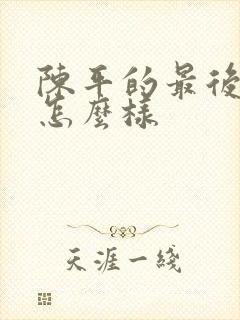 陳平的最後
怎麼樣
天涯一綫